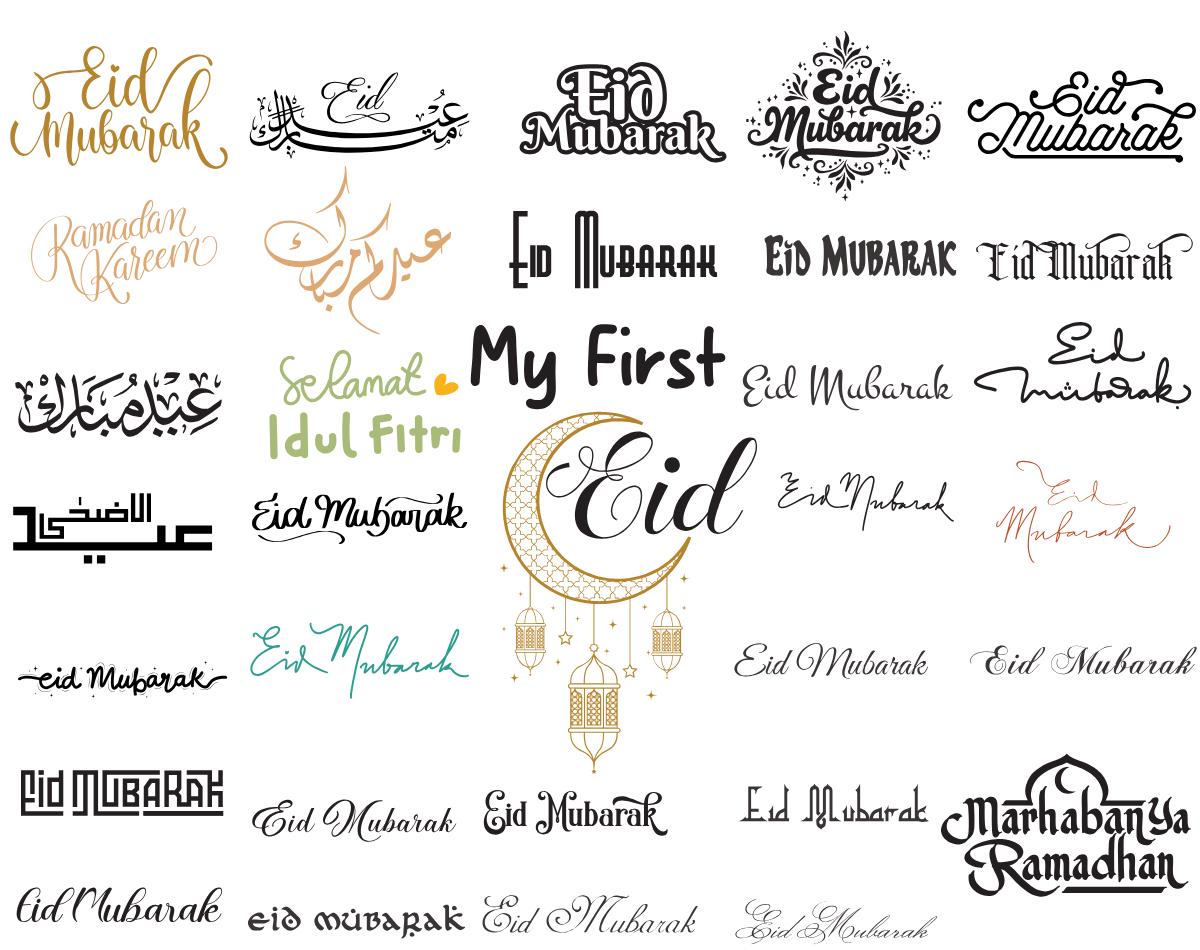 Eid
Mubarak
Eid
عيد مبارك
Eid
Mubarak
Eid
Mubarak
Eid
Mubarak
Ramadan
Kareem
عيدكم مبارك
Eid Mubarak
Eid Mubarak
Eid Mubarak
عيد مبارك
Selamat
Idul Fitri
My First
Eid
Eid Mubarak
Eid
Mubarak
عيد الاضحى
Eid Mubarak
Eid Mubarak
Eid
Mubarak
eid Mubarak
Eid Mubarak
Eid Mubarak
Eid Mubarak
Eid MUBARAK
Eid Mubarak
Eid Mubarak
Eid Mubarak
Marhaban Ya
Ramadhan
Eid Mubarak
eid mubarak
Eid Mubarak
Eid Mubarak